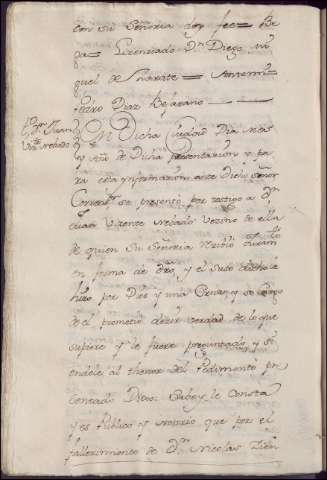 con su Señoria doy fee= Be
ga= Lizenciado Dn Diego Mi
guel de = Antemi
Pedro Diaz Bejarano
Dn Juan
Vizte Melado
En Dicha Ciudad Dia Mes
y Año de Dicha presentazion y pa
ra esta ynformazion ante Dicho Señor
Correxr se presentó por testigo a Dn
Juan Vizente Melado Vezino de ella
de quien Su Señoria recibió Juramto
en forma de dro, y el suso dicho le
hizo por Dios y una Cruz, y so cargo
de el prometió dezir verdad de lo que
supiere y le fuere preguntado, y si
endole al thenor del Pedimento pre
sentado Dixo: Sabe y le Consta
y es Publico y notorio que por el
fallezimiento de Dn Nicolas